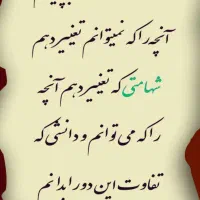 آنچه را که نمیتوانم تغییر دهم
شهامتی که تغییر دهم آنچه
را که می توانم و دانشی که
تفاوت این دو را بدانم